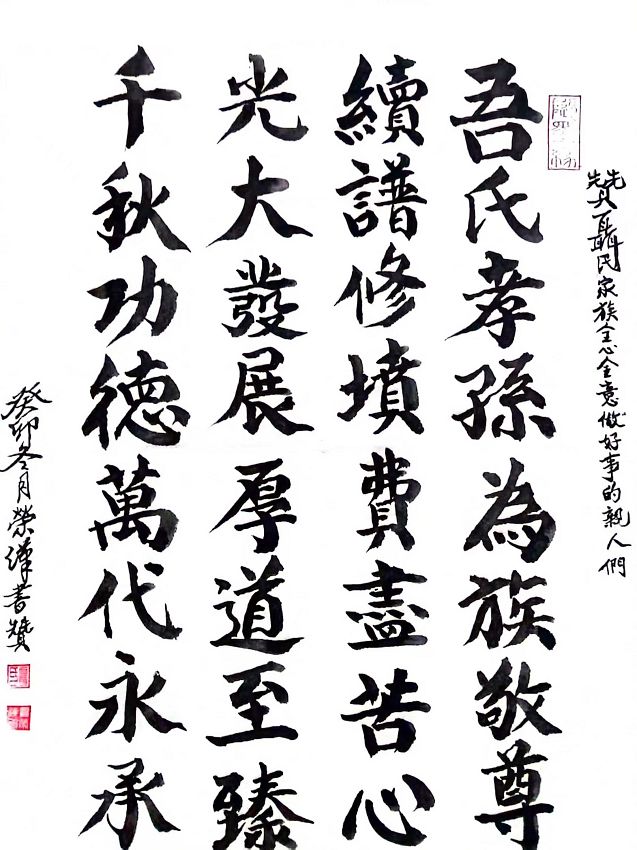 贊聶氏家族全心全意做好事的親人們
吾氏孝孫為族敬尊
續譜修墳費盡苦心
光大發展厚道至臻
千秋功德萬代永承
癸卯冬月榮澤書贊